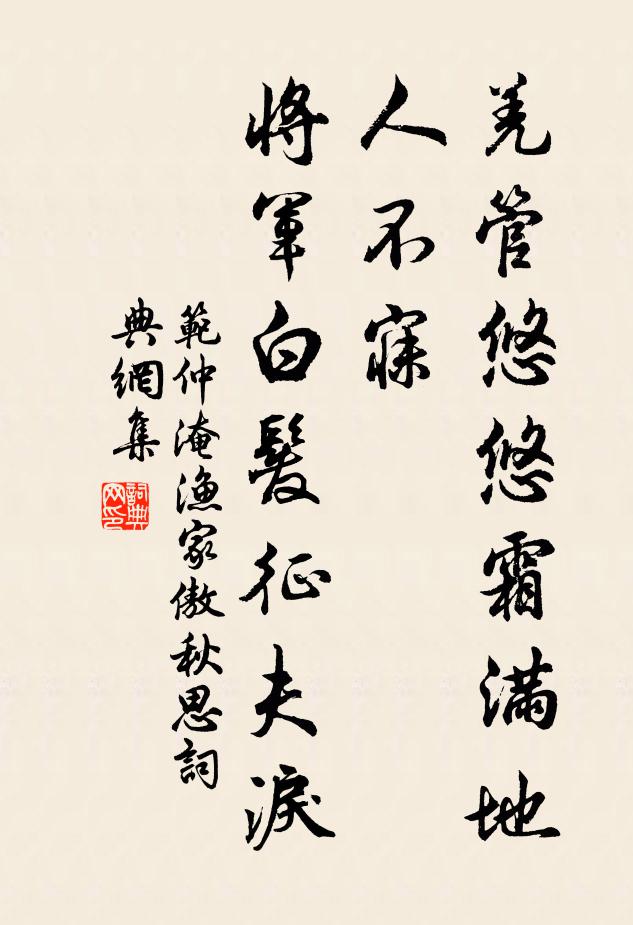 羌管悠悠霜滿地
人不寐
將軍白髮征夫淚
範仲淹漁家傲秋思詞
典網集
詞典
网印